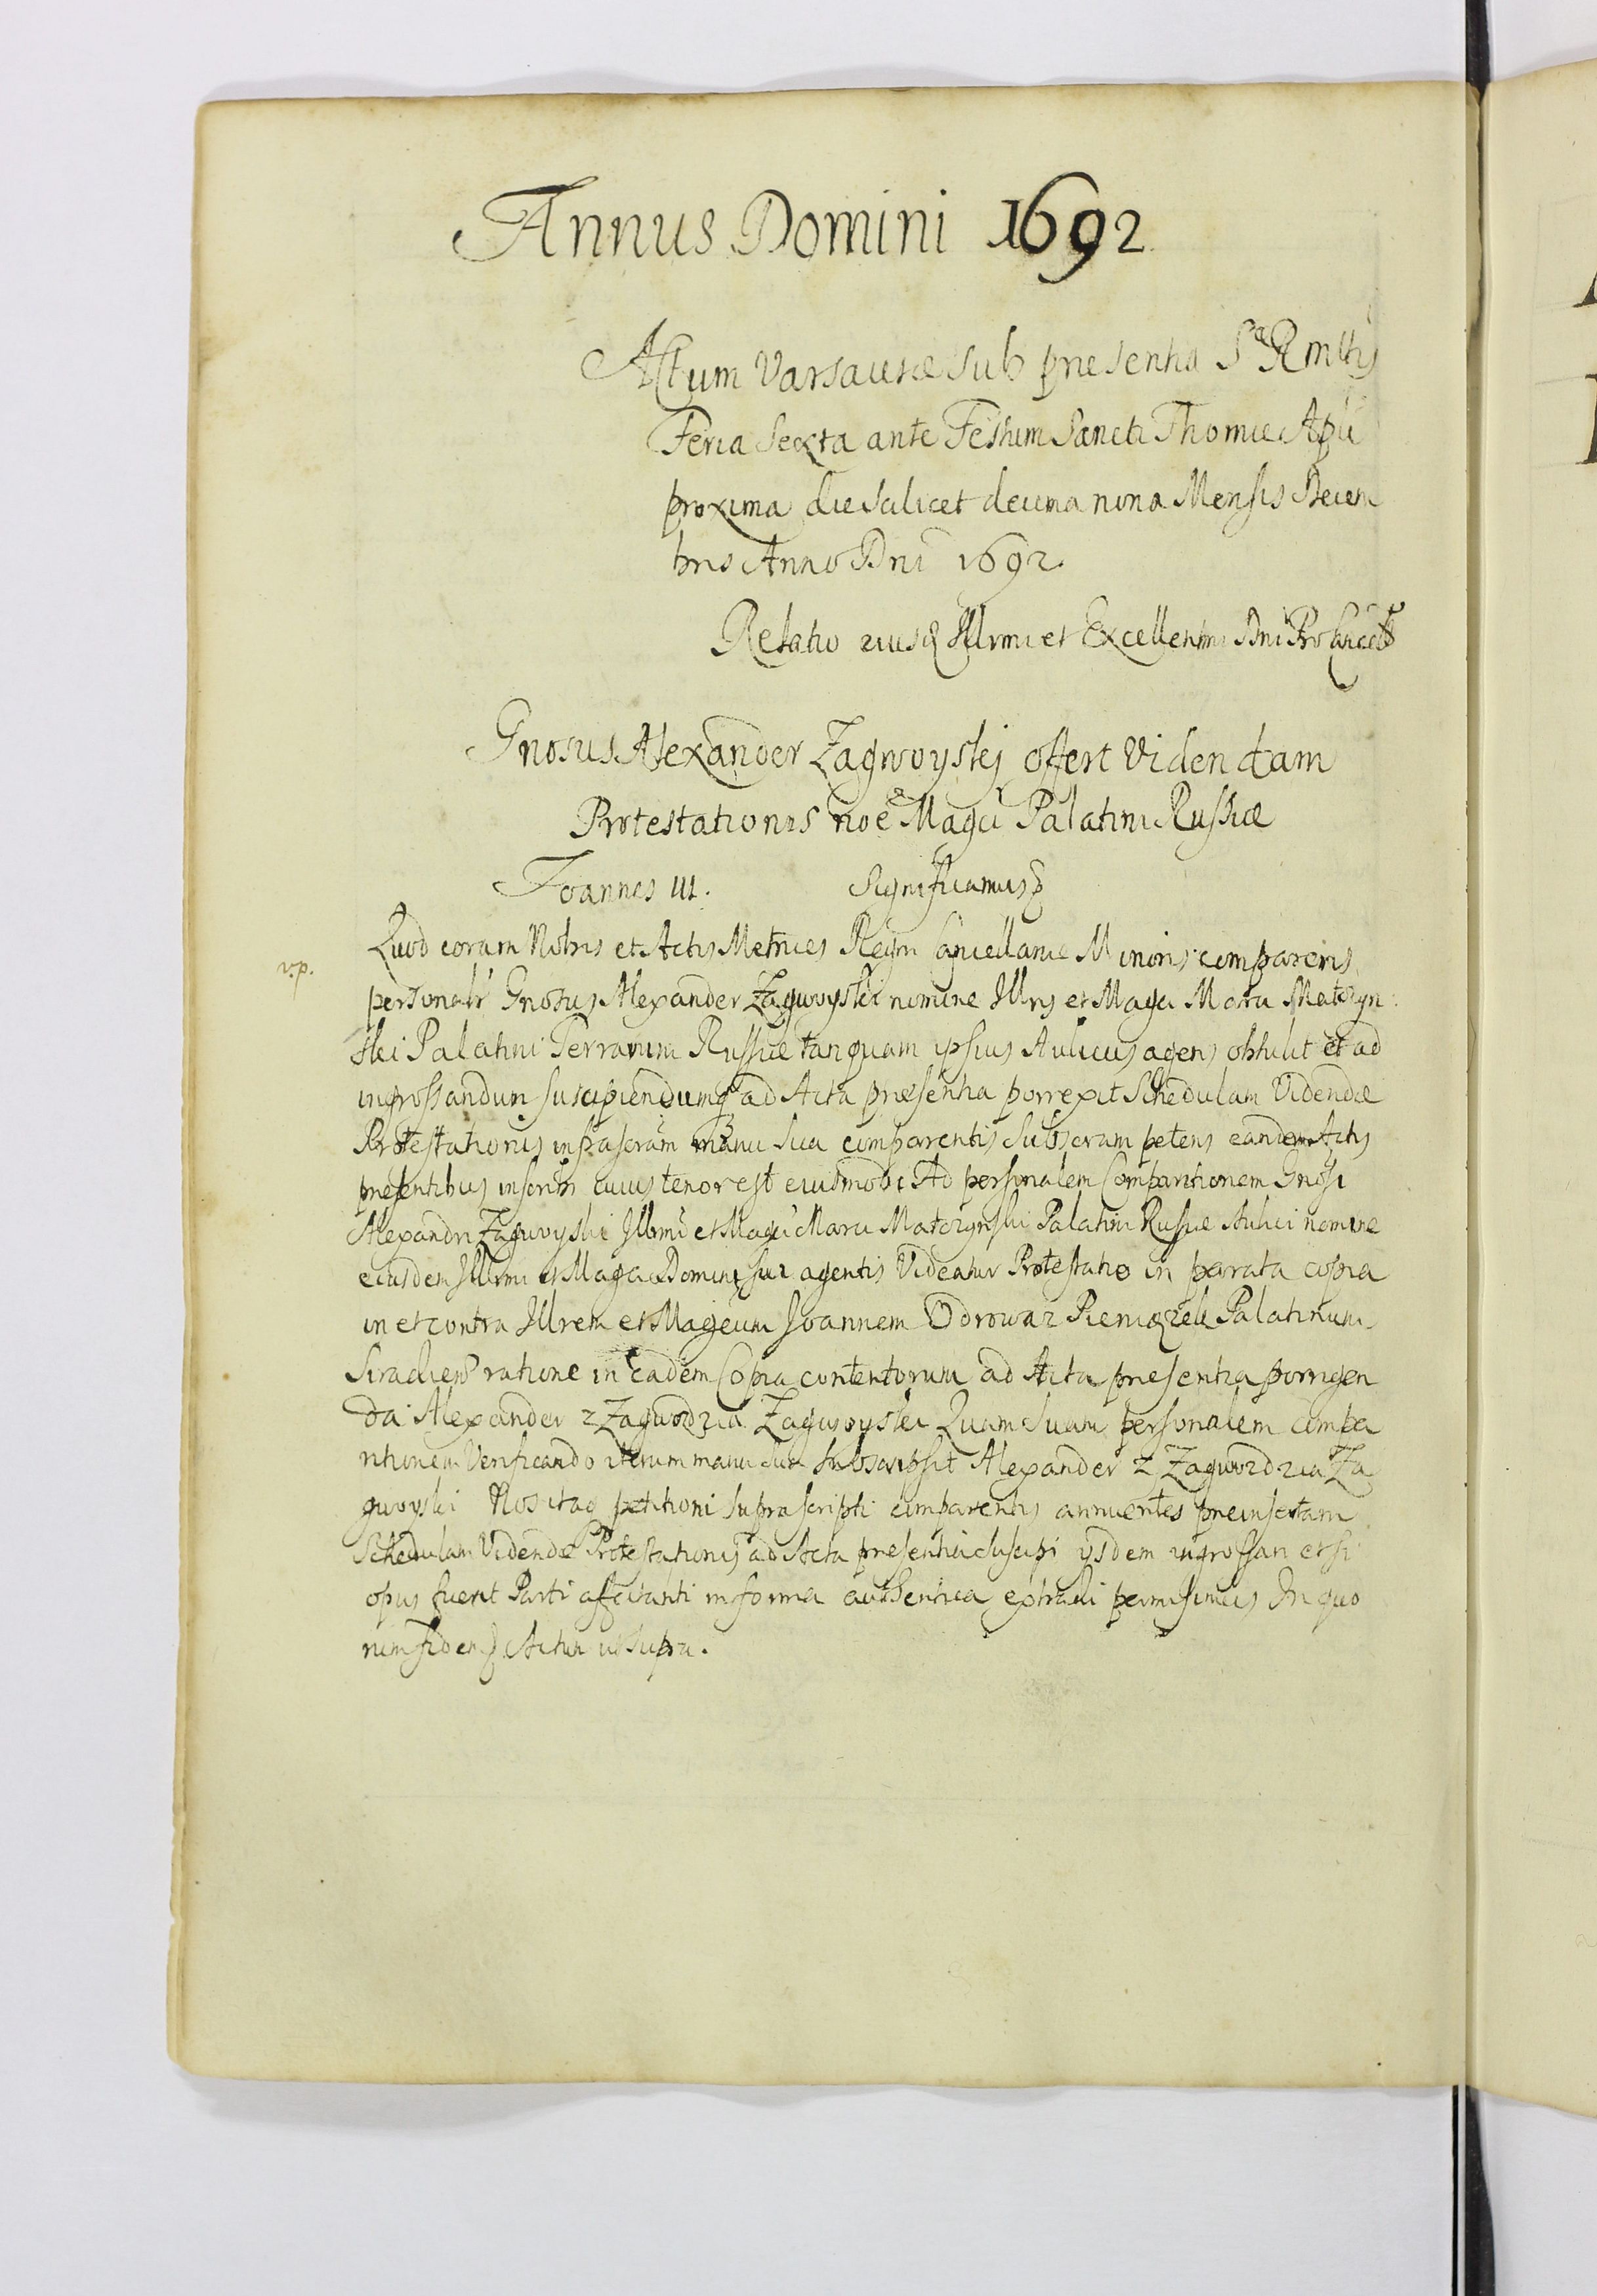 Annus Domini 1692
Actum Varsaviæ sub præsentia Sae R Mttis
Feria Sexta ante Festum Sancti Thomæ Apli
proxima die Scilicet decima nona Mensis Decem
bris Anno Dni 1692.
Relatio eiusq Illrmi et Excellentmi Dni ProCancell
Gnosus Alexander Zagwoyskj offert Videndam
Protestationis noe Magci Palatini Russiæ
Joannes III. Significamus
Quod coram Nobis et Actis Metrices Regni Cancellariæ Minoris comparens
v.p.
personalr Gnosus Alexander Zagwoyski nomine Illris et Magci Marci Matczyn
ski Palatini Terrarum Russiæ tanquam ipsius Aulicus agens obtulit et ad
ingrossandum suscipiendumq ad Acta præsentia porrexit Schedulam Videndæ
Protestationis infrascram manu sua comparentis subscram petens eandem Actis
præsentibus inseri cuius tenor est eiusmodi Ad personalem Comparitionem Gnosi
Alexandri Zagwyski Illrmi et Magci Marci Matczynski Palatini Russiæ Aulici nomine
eiusdem Illrmi et Magci Domini sui agentis Videatur Protestatio in parata copia
in et contra Illrem et Magcum Joannem Odrowaz Pieniązek Palatinum
Siradien ratione in eadem Copia contentorum ad Acta præsentia porrigen
da Alexander z Zagwozdzia Zagwoyski Quam suam personalem compa
ritionem Verificando iterum manu sua subscripsit Alexander z Zagwozdzia Za
gwoyski Nos itaq petitioni suprascripti comparentis annuentes præinsertam
Schedulam Videndæ Protestationis ad Acta præsentia suscipi ijsdem ingrossari et si
opus fuerit Parti affectanti in forma authentica extradi permisimus In quo
rum fidem Actum ut supra.